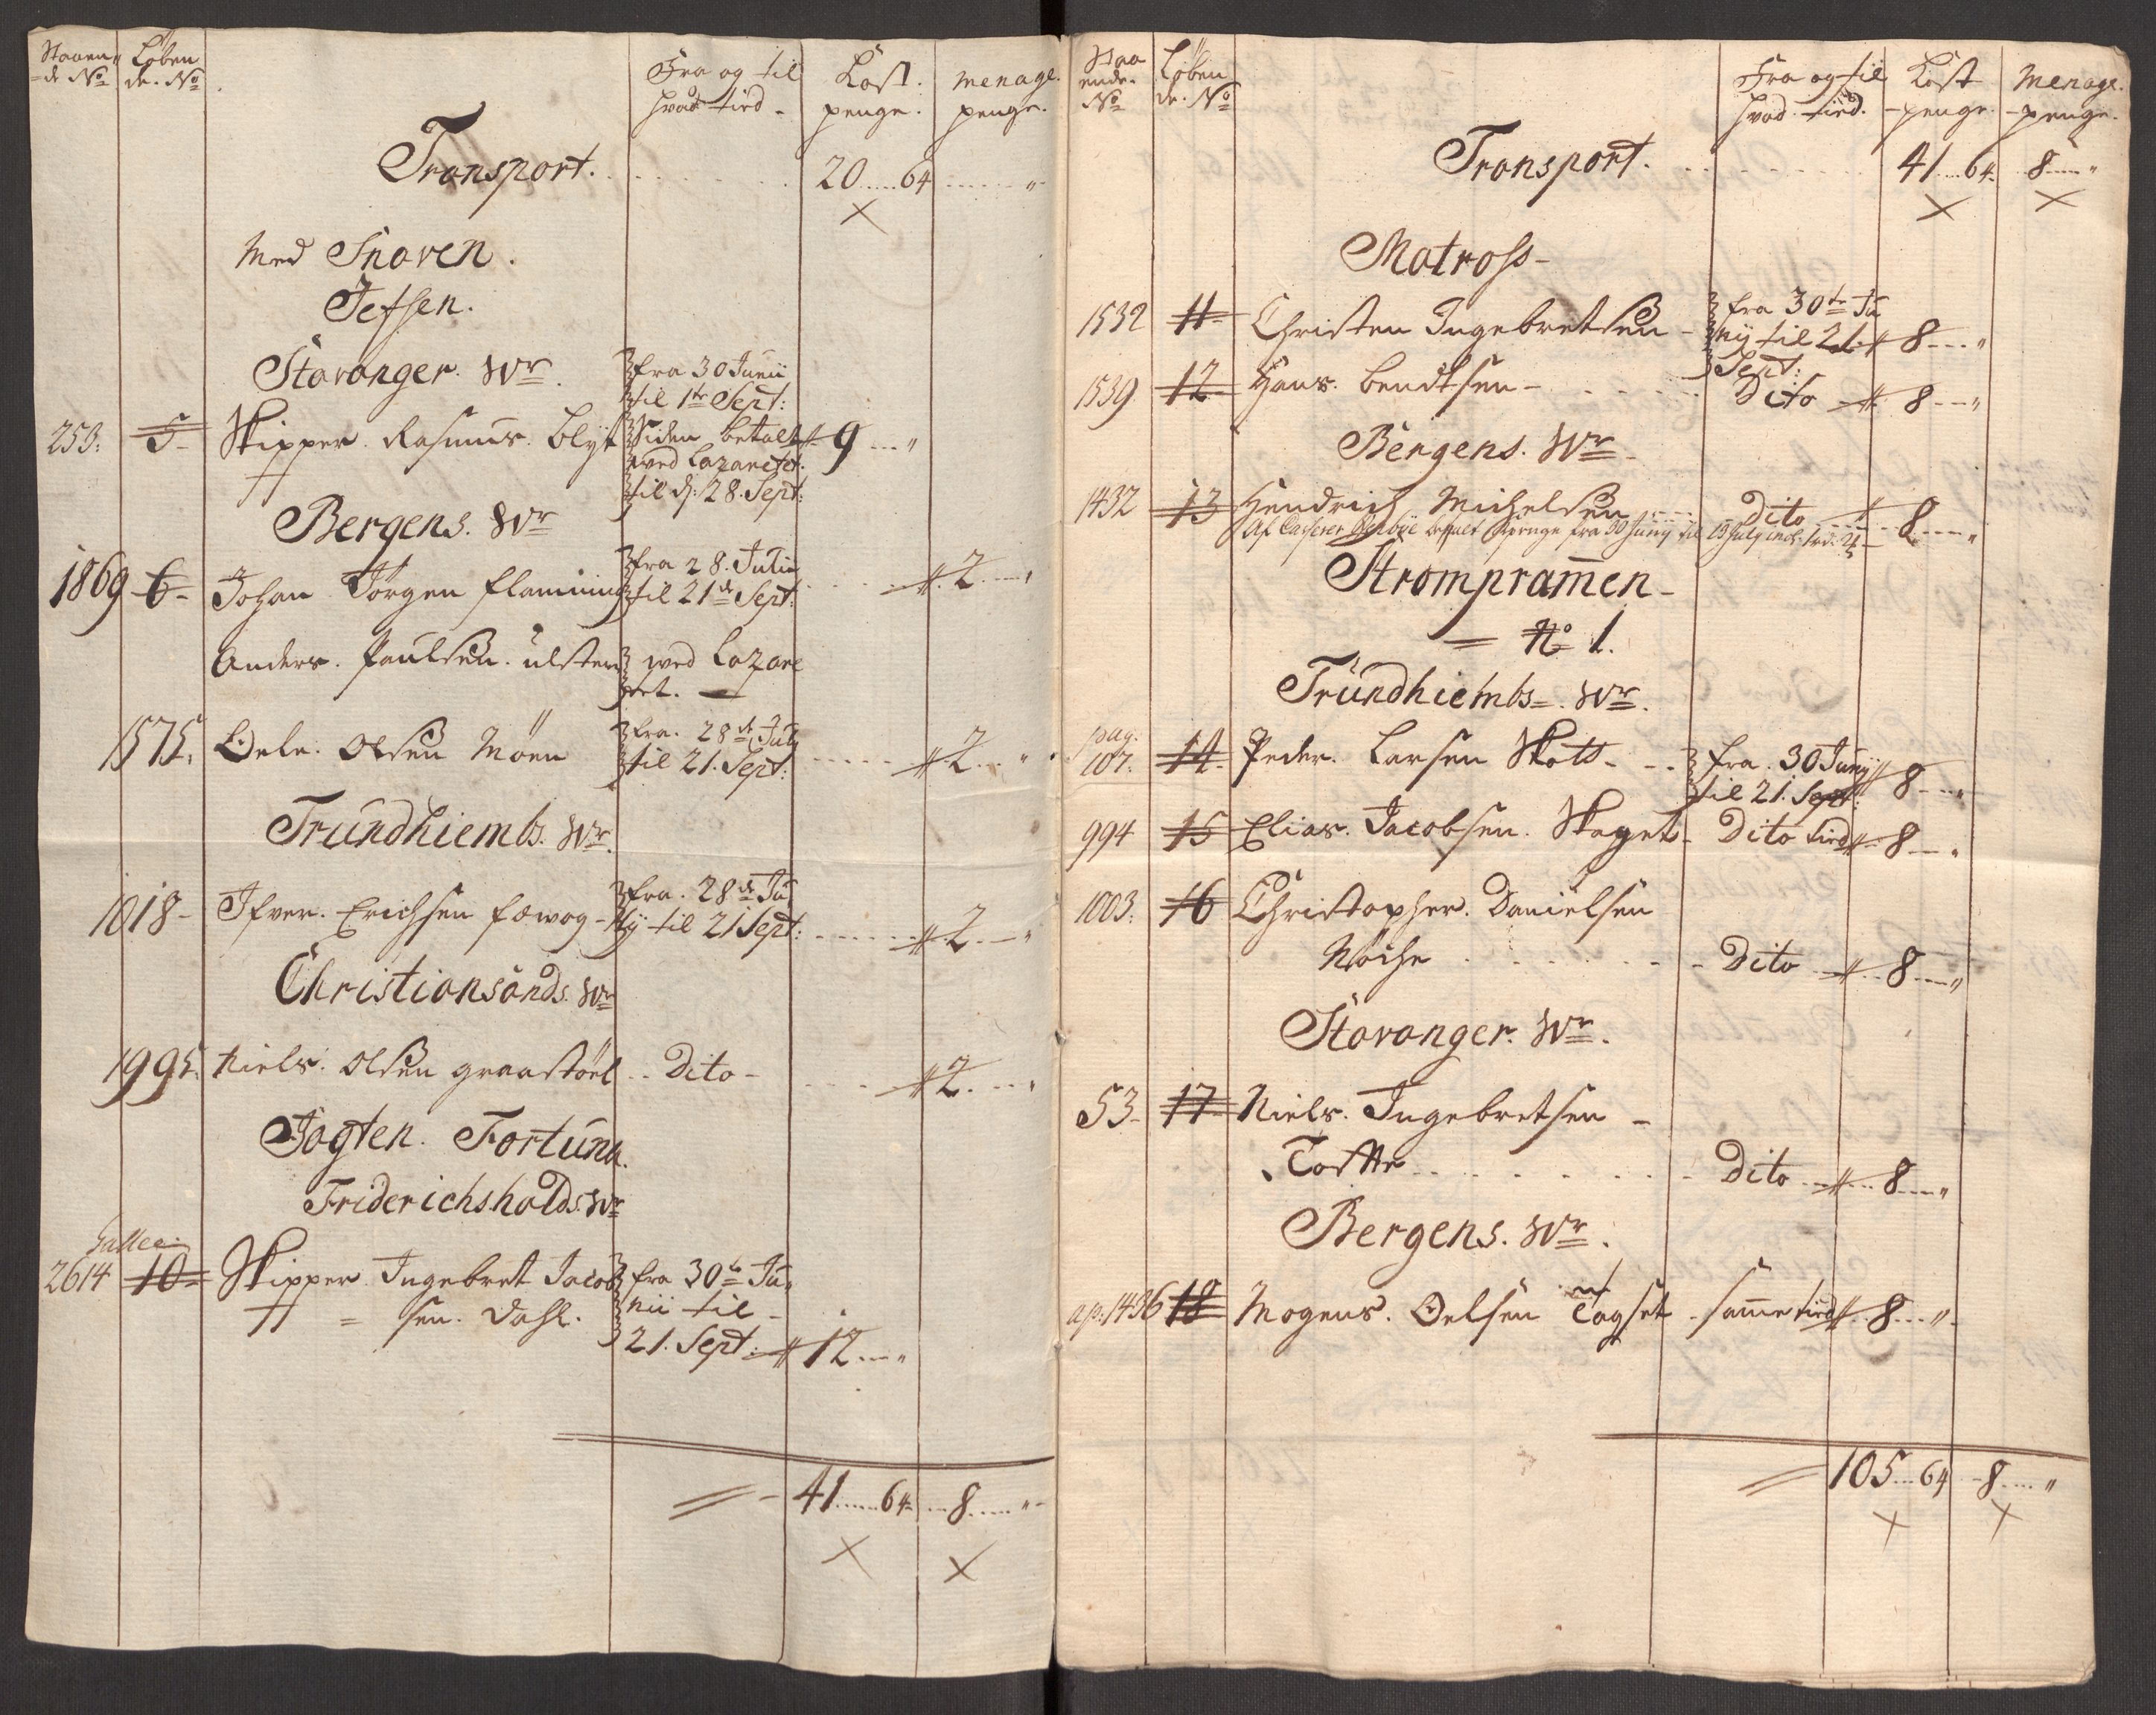 Staaen-
de No
Løben
de. No
Fra og til
hvad tied -
Kost.
penge.
menage.
penge.
Transport. 20 64 "
Med Snaven.
Jefsen.
Stavanger. Wr.
fra 30 Junii
til 1te Sept:
253: 5 Skipper. Rasmus. Blyt
Siden betalt 9 "
ved Lazarettet.
til d: 28. Sept:
Bergens. Wr
1869 6 Johan Jørgen flamming
fra 28. Julii
til 21de Sept: 2 "
Anders. Paulsen. ulsten
ved Lazare
tet.
1575. Oele. Olsen Moen
fra. 28de July
til 21. Sept: 2 "
Trundhiembs. Wr.
1018 - Ifver. Erichsen
fra. 28de Ju
ly til 21 Sept: 2 "
Christiansands. Wr
1995. Niels. Olsen graastöel Dito - 2 "
Jagten. Fortuna.
Friderichshalds Wr
Gallee.
2614 10 Skipper. Ingebret Jacob
= sen. Dahl.
fra 30te Ju
nii til
21. Sept: 12 "
41 64 8 "
Staa
ende.
No
Løben
de. No
Fra og til
hvad. tied.
Kost
penge.
Menage.
penge.
Transport. 41 64 8 "
Matross-
1532 11 Christen Ingebretsen -
fra 30te Ju
nij til 21. 8 "
Sept:
1539 12 Hans. Bendtsen - Dito 8 "
Bergens. Wr
1432 13 Hendrich Michelsen Dito 8 "
Strompramen -
No 1.
Trundhiembs. Wr.
pag.
107. 14 Peder. Larsen Skott - fra. 30 Junij
til 21. Sept: 8 "
994 15 Elias. Jacobsen. - Dito tied 8 "
1003. 16 Christopher. Danielsen
Dito 8 "
Stavanger. Wr.
53 - 17 Niels. Ingebretsen -
Dito 8 "
Bergens. Wr.
ap: 1436 18 Mogens. Oelsen samme tied 8 "
105 64 8 "